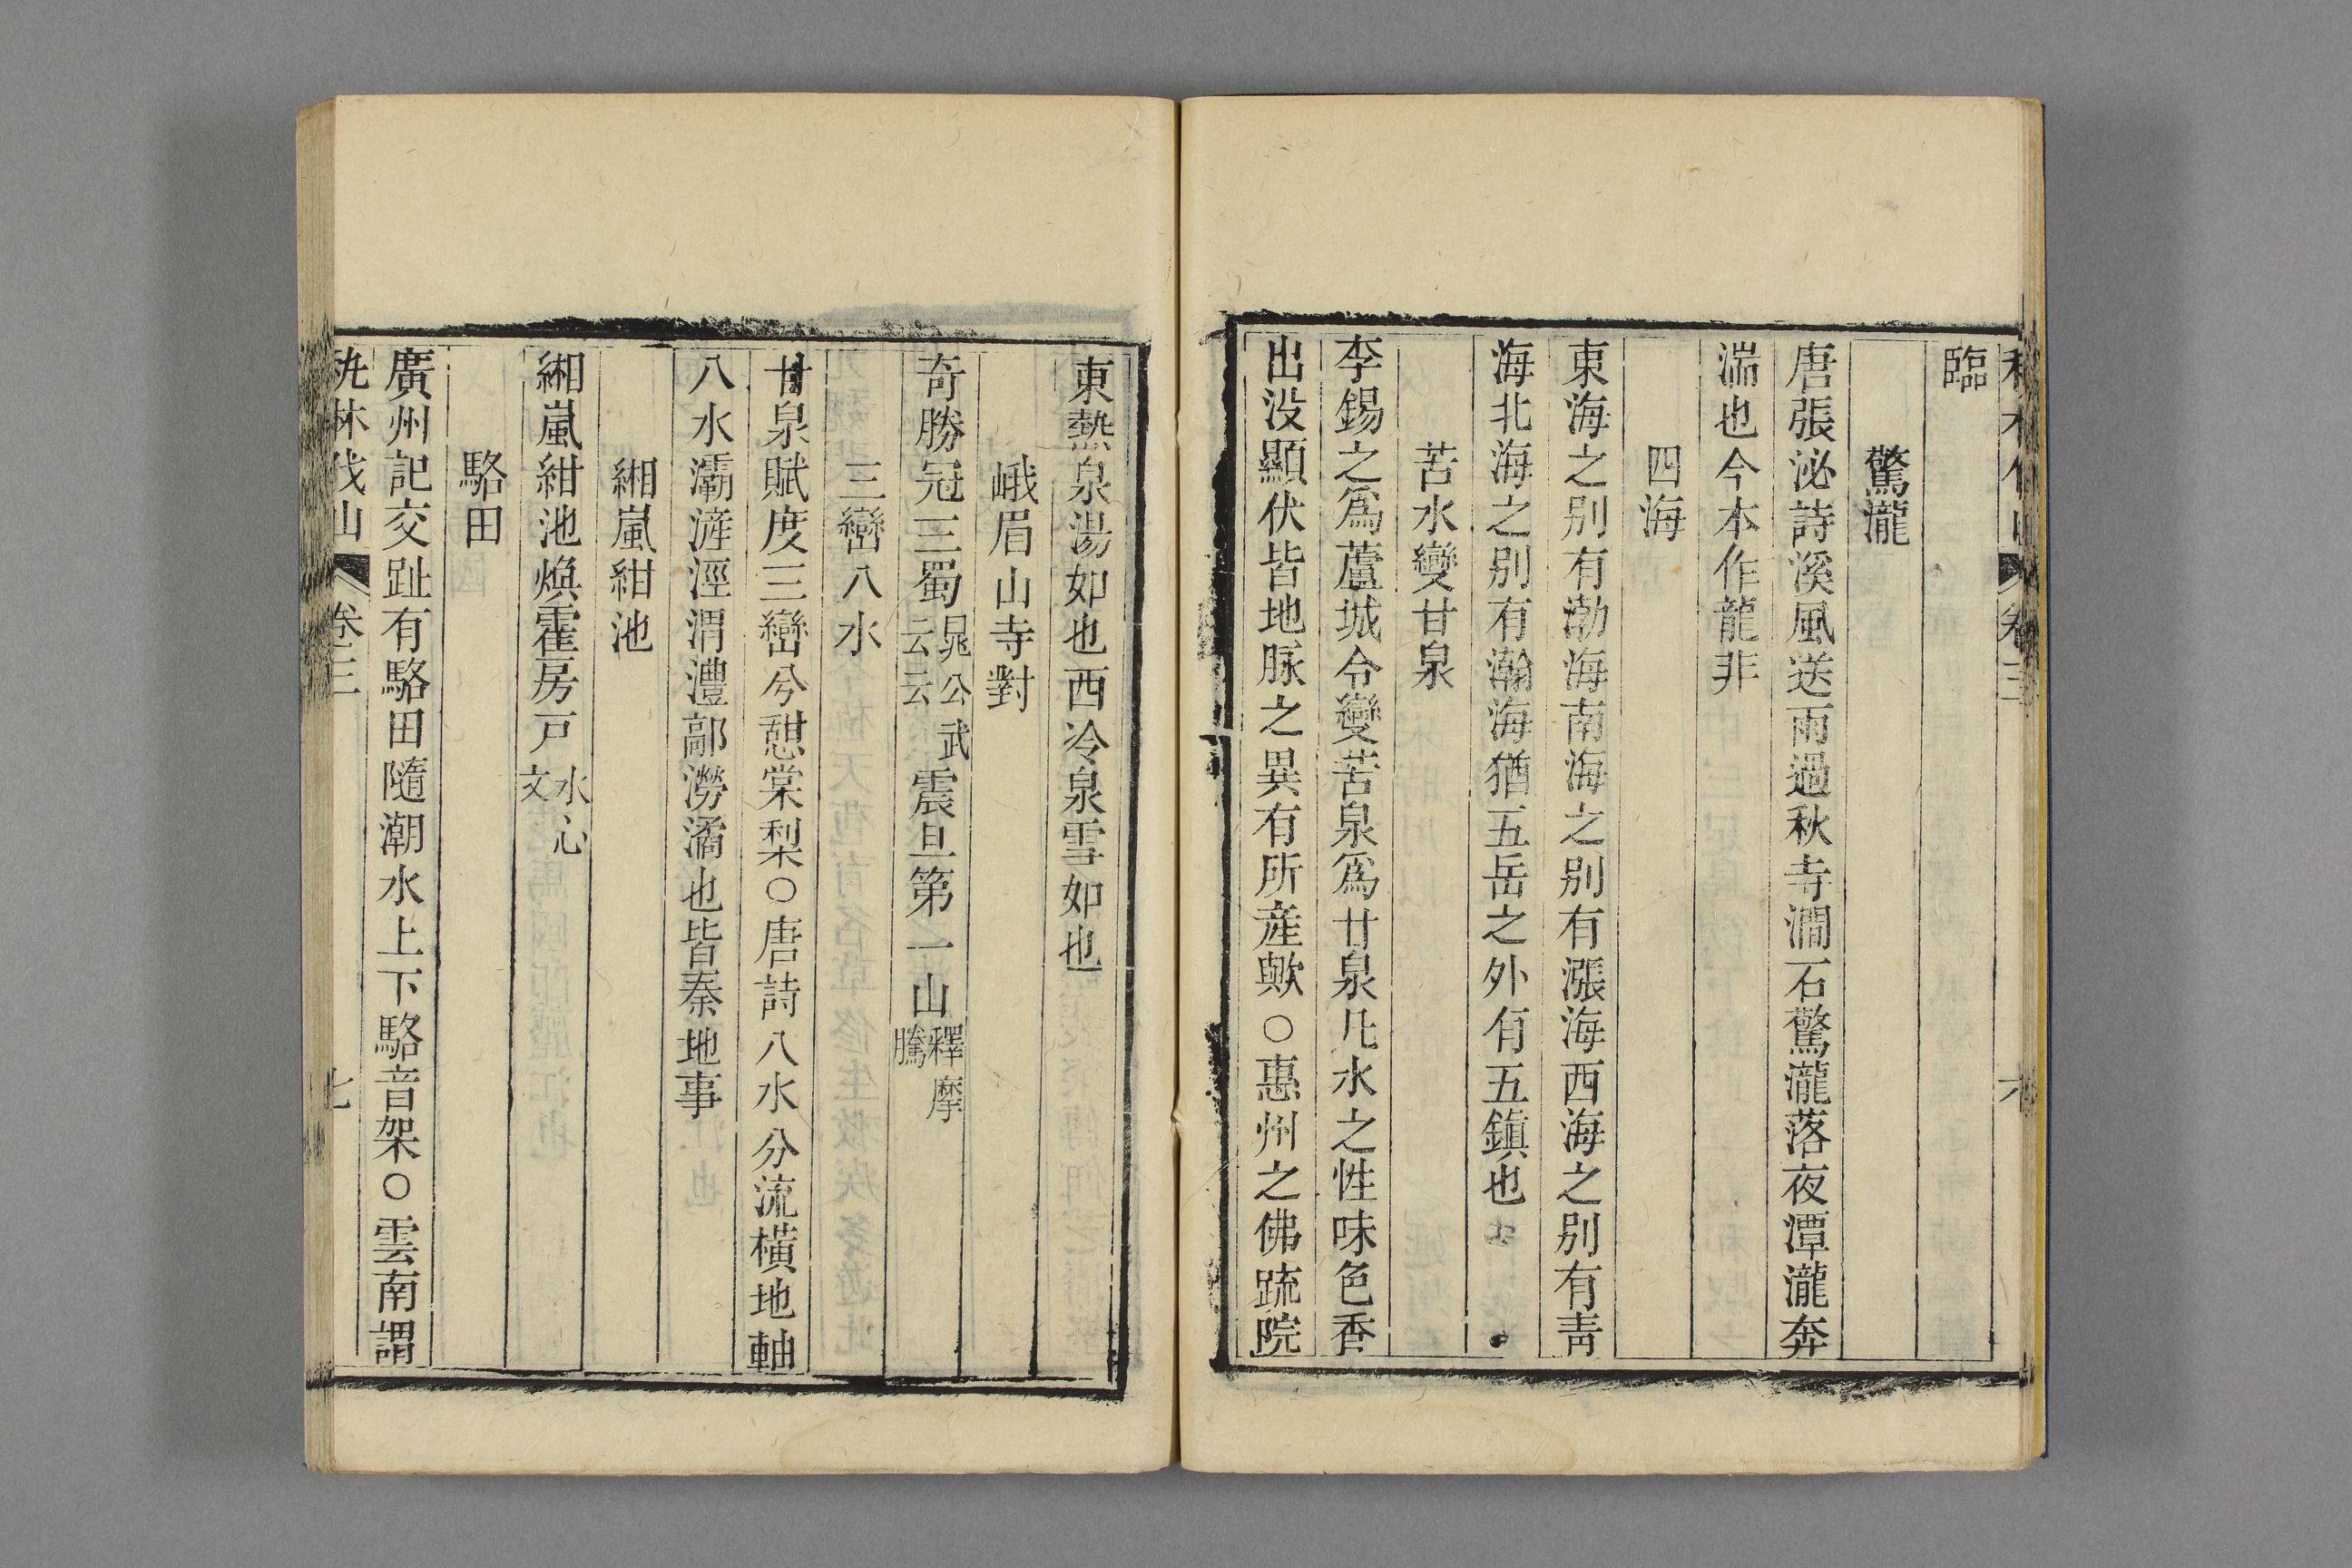 臨
驚瀧
唐張泌詩溪風送雨過秋寺澗石驚瀧落夜潭瀧奔
湍也今本作龍非
四海
東海之别有渤海南海之别有漲海西海之别有青
海北海之别有瀚海猶五岳之外有五鎮也
苦水變甘泉
李錫之爲蘆城令變苦泉爲甘泉凡水之性味色香
出没顯伏皆地脉之異有所産歟○惠州之佛䟽院
東熱泉湯如也西冷泉雪如也
峨眉山寺對
奇勝冠三蜀晁公武云云震旦第一山釋摩騰
三巒八水
甘泉賦度三巒兮憇棠梨○唐詩八水分流橫地軸
八水灞滻涇渭澧鄗澇潏也皆秦地事
緗嵐紺池
緗嵐紺池煥霍房戸水心文
駱田
廣州記交趾有駱田隨潮水上下駱音架○雲南謂
卷三
七